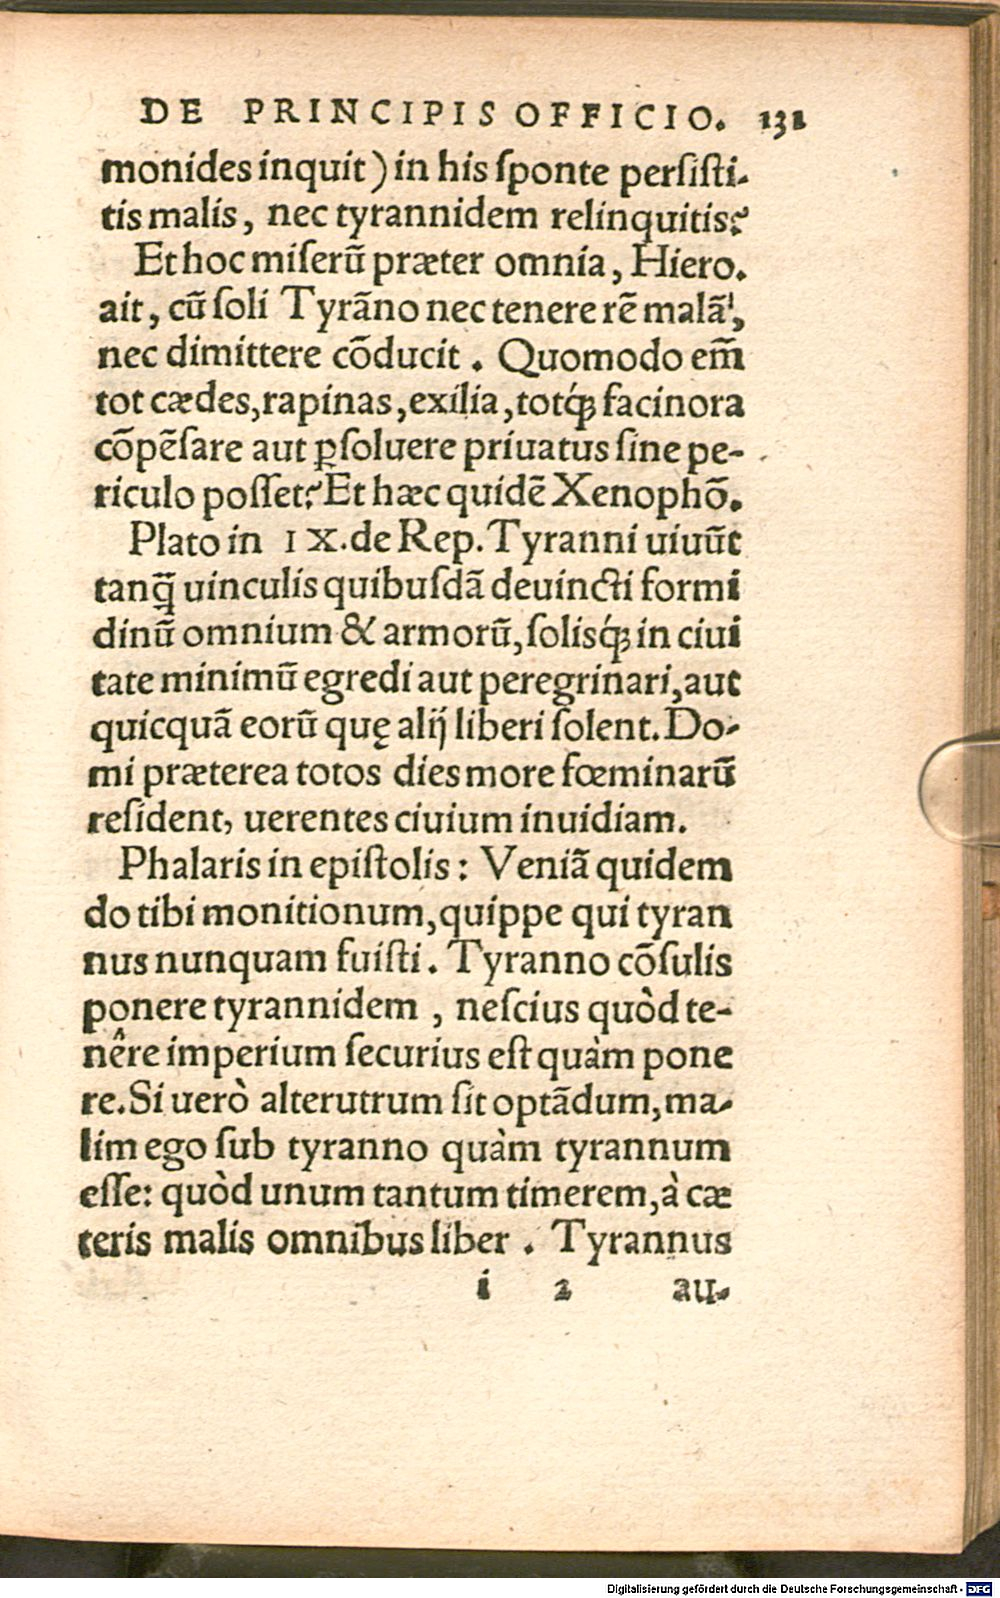 DE PRINCIPIS OFFICIO. 131
monides inquit) in his ſponte persiſti-
tis malis, nec tyrannidem relinquitis?
Et hoc miſerũ præter omnia, Hiero.
ait, cũ ſoli Tyrãno nec tenere rẽ malã,
nec dimittere cõducit. Quomodo em̃
tot cædes, rapinas, exilia, totq́; facinora
cõpẽſare aut ꝑſoluere priuatus ſine pe-
riculo poſſet? Et hæc quidẽ Xenophõ.
Plato in IX. de Rep. Tyranni uiuũt
tanq̃ uinculis quibuſdã deuincti formi
dinũ omnium & armorũ, ſolisq́; in ciui
tate minimũ egredi aut peregrinari, aut
quicquã eorũ quę alij liberi ſolent. Do-
mi præterea totos dies more fœminarũ
reſident, uerentes ciuium inuidiam.
Phalaris in epiſtolis: Veniã quidem
do tibi monitionum, quippe qui tyran
nus nunquam fuiſti. Tyranno cõſulis
ponere tyrannidem, neſcius quòd te-
nêre imperium ſecurius eſt quàm pone
re. Si uerò alterutrum ſit optãdum, ma-
lim ego ſub tyranno quàm tyrannum
eſſe: quòd unum tantum timerem, à cæ
teris malis omnibus liber. Tyrannus
i 2 au-
Digitalisierung gefördert durch die Deutsche Forschungsgemeinschaft - DFG